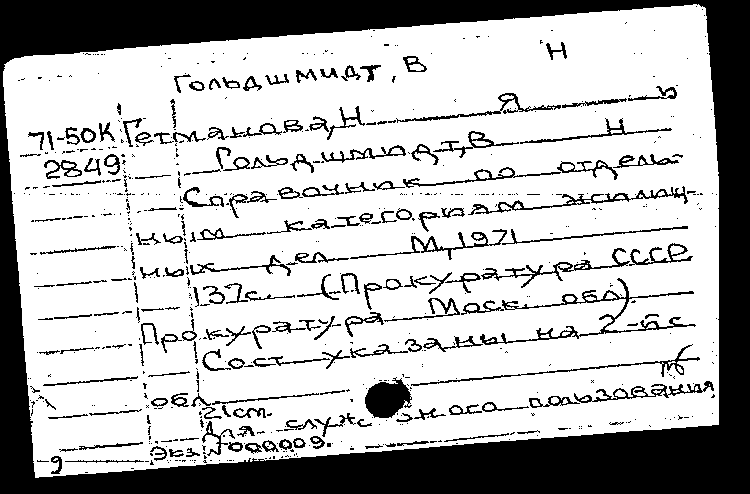 Гольдшмидт, В Н
71-50К Гетманова, Н Я Ь
2849 Гольдшмидт, В Н
Справочник по отдель-
ным категориям жилищ-
ных дел М, 1971
137с. (Прокуратура СССР.
Прокуратура Моск. обл).
Сост указаны на 2-й с
обл.
21cm.
Для служебного пользования
9 Экз N 000009.